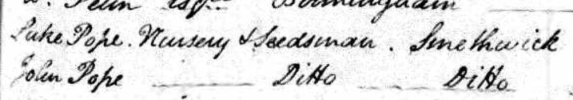 Penn Esqre Birmingham
Luke Pope. Nursery & Seedsman. Smethwick
John Pope Ditto Ditto